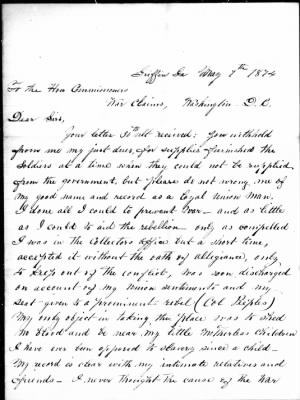 Griffin Ga May 7th 1874
To the Hon Commissioners
War Claims, Washington D. C.
Dear Sirs,
Your letter ult received; You withhold
from me my just dues, for supplies furnished the
Soldiers at a time when they could not be supplied
from the government, but please do not wrong me of
my good name and record as a loyal Union Man.
I done all I could to prevent war - and as little
as I could to aid the rebellion only as compelled
I was in the Collectors Office but a short time,
accepted it without the oath of allegiance, only
to keep out of the conflict, was soon discharged
on account of my Union sentiments and my
seat given to a prominent rebel (Col Peeples)
My only object in taking the place was to shed
no blood and be near my little motherless children
I have ever been opposed to slavery since a child -
My record is clear with my intimate relatives and
friends - I never thought the cause of the war